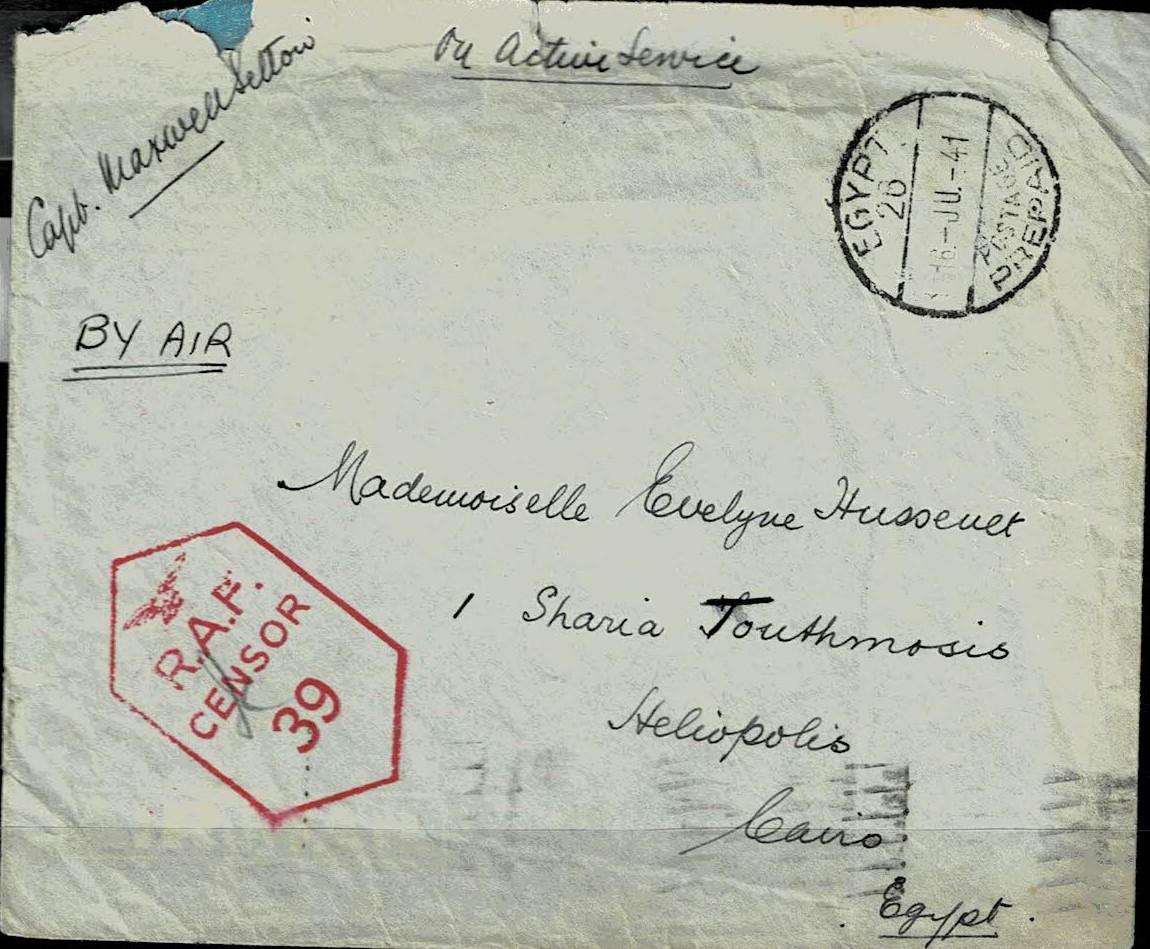 On Active Service
Capt. Maxwell Setton
EGYPT
26
16-JU.-41
POSTAGE
PREPAID
BY AIR
Mademoiselle Evelyne Hussenet
1 Sharia Touthmosis
Heliopolis
Cairo
Egypt.
R.A.F.
CENSOR
39